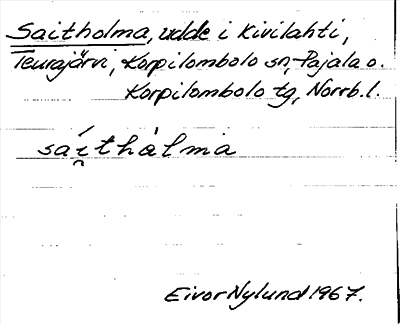 Saitholma, udde i Kivilahti,
Teurajärvi, Korpilombolo sn, Pajala o.
Korpilombolo tg, Norrb.l.
sái̯thàlma
Eivor Nylund 1967.